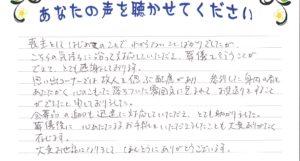 あなたの声を聴かせてください
喪主としてはじめてのことで、わからないことばかりでしたが、
こちらの気持ちに沿って対応していただき、葬儀を行うことが
でき、とても感謝しております。
思い出コーナーなど故人を偲ぶ配慮があり、参列した身内の者も
あたたかく心のこもった落ちついた雰囲気に包まれお見送りすること
ができたと申しておりました。
の動きも迅速に対応していただき、とても助かりました。
葬儀後に心あたたまるお手紙をいただきましたことも大変ありがたく
存じます。
大変お世話になりまして、ほんとうにありがとうございます。